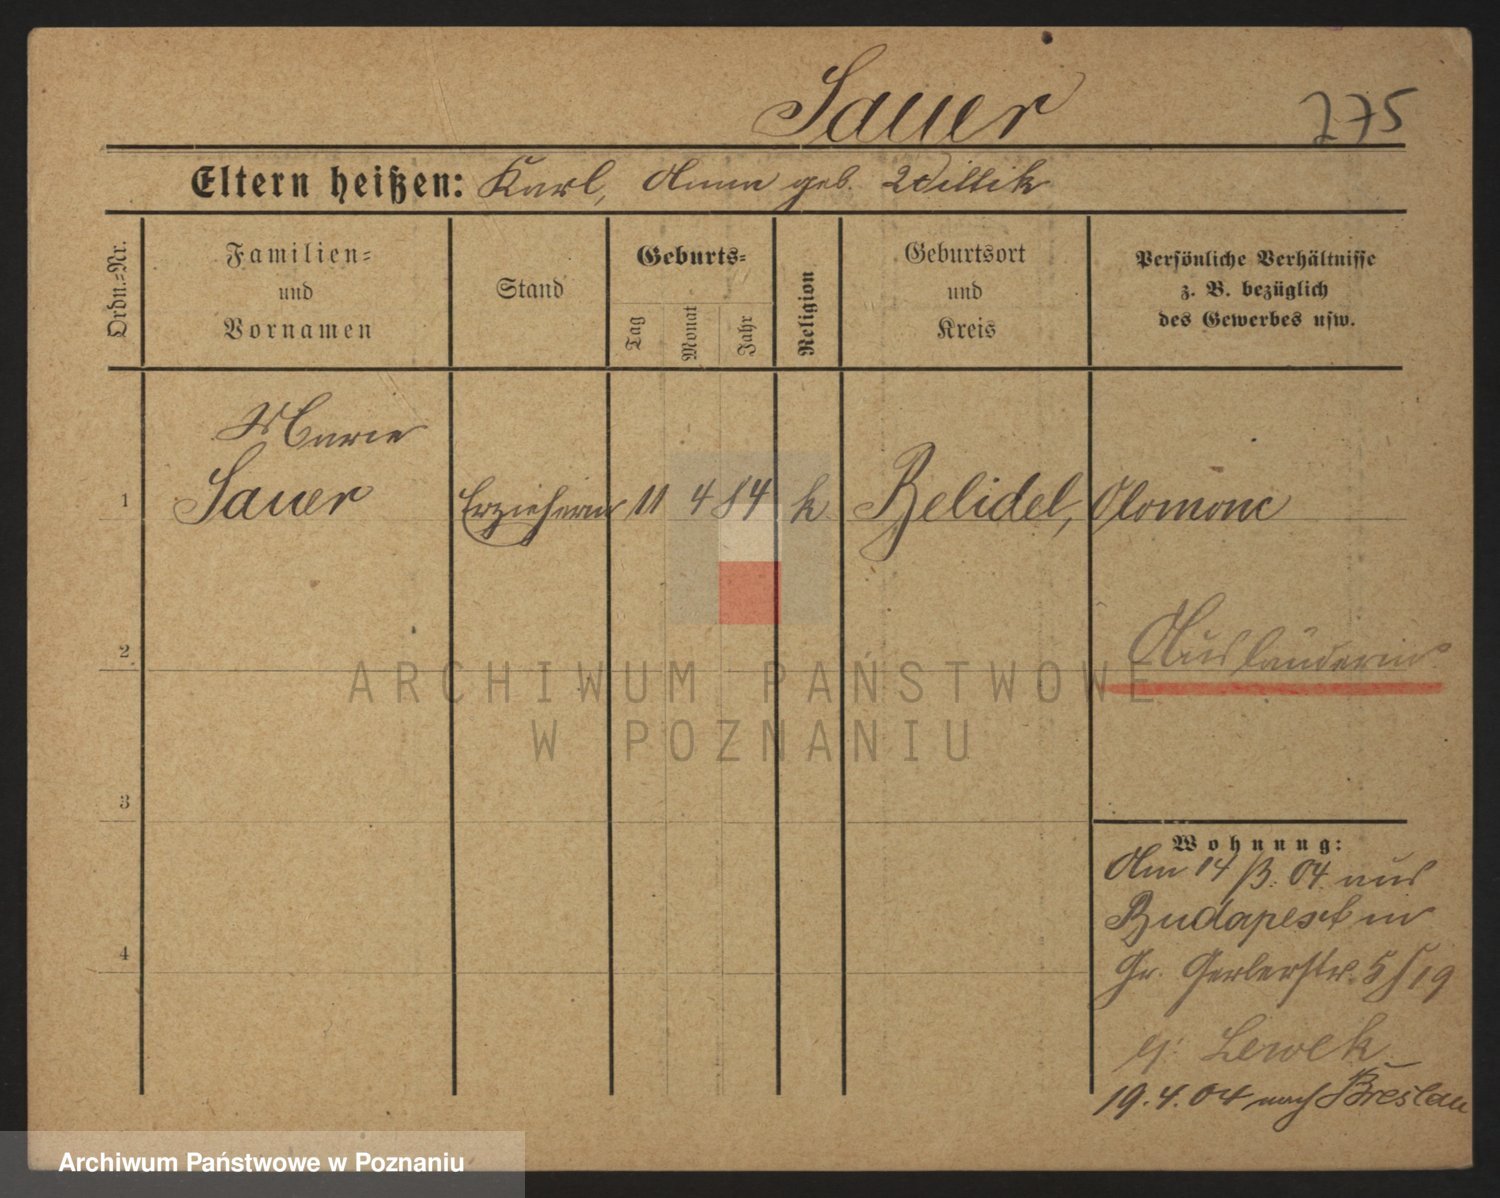 Sauer 275
Eltern heißen: Karl, Anna geb. Wittik
Ordn.=Nr.
Familien=
und
Vornamen
Stand
Geburts=
Tag
Monat
Jahr
Religion
Geburtsort
und
Kreis
Persönliche Verhältnisse
z. B. bezüglich
des Gewerbes usw.
Marie
1 Sauer Erzieherin 11 4 84 k Belidel, Olomouc
2 Ausländerin
3
4
Wohnung:
Am 14/3. 04. aus
Budapest in
Gr. Gerberstr. 5/19
b/ Lewek
19. 4. 04 nach Breslau
ARCHIWUM PAŃSTWOWE
W POZNANIU
Archiwum Państwowe w Poznaniu